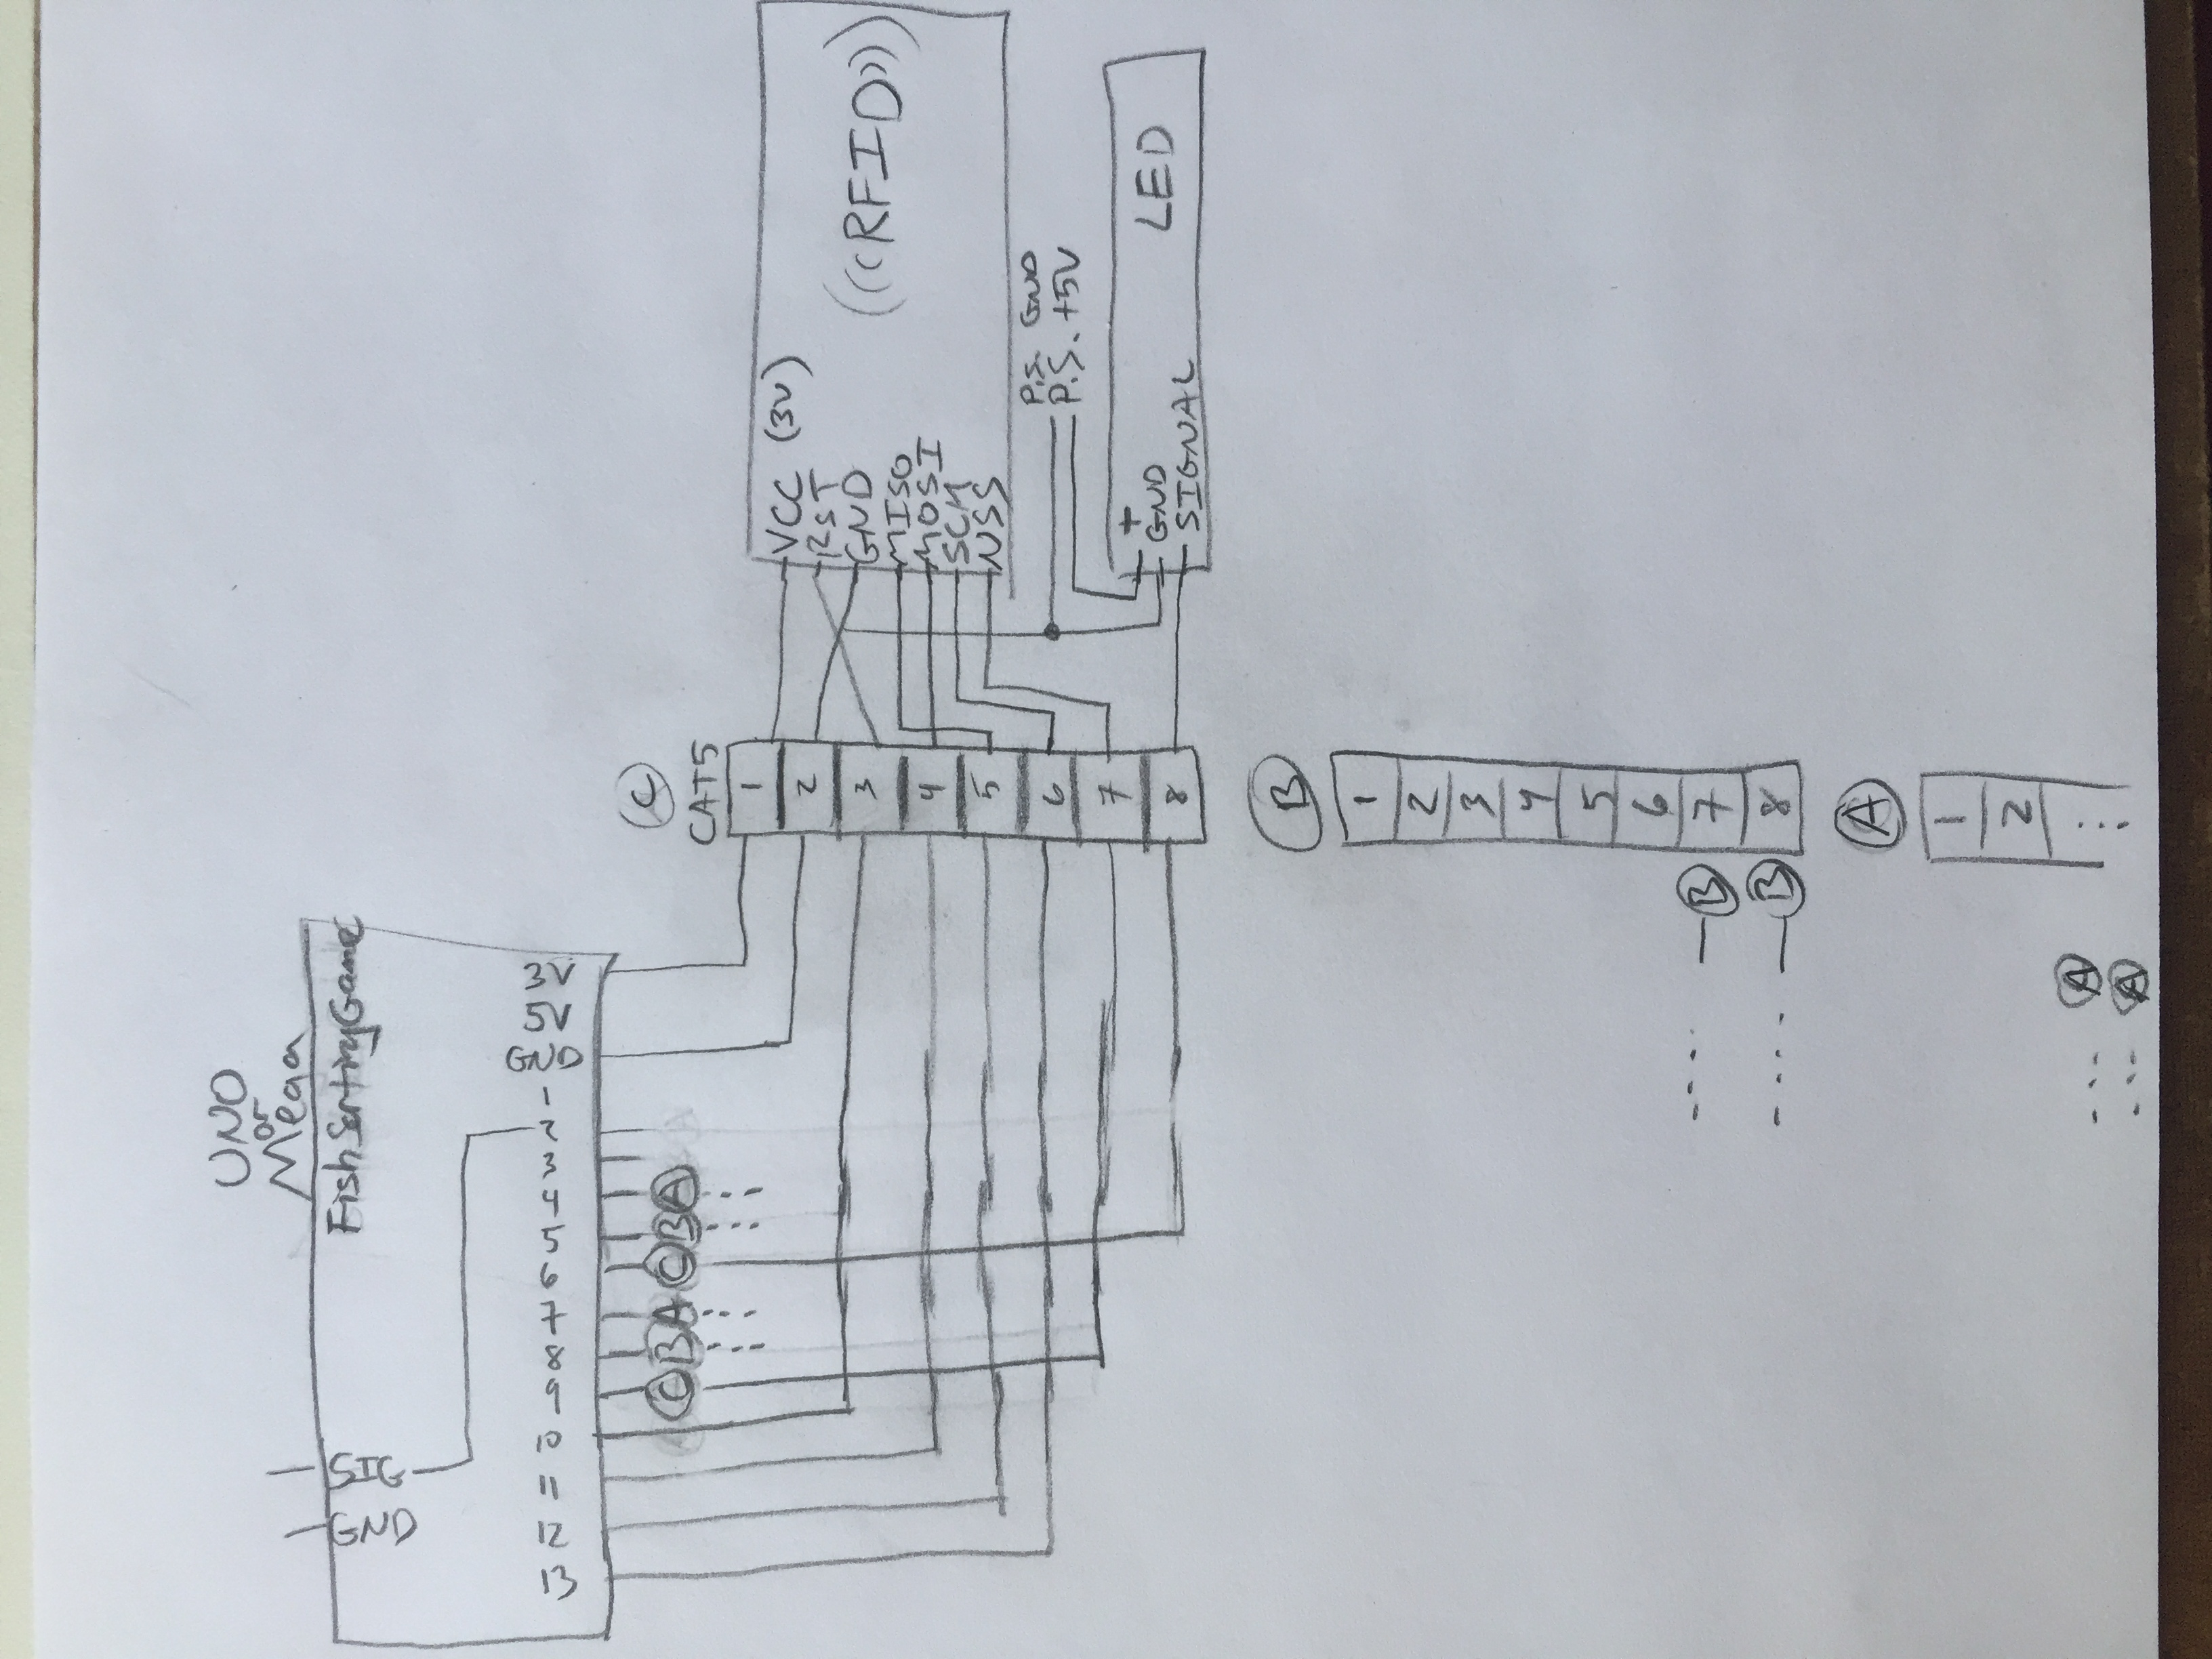 UNO
or
Mega
FishSortingGame
GND
SIG
13 12 11 10 9 8 7 6 5 4 3 2 1 GND 5V 3V
C B A C B A
C
CAT5
1
2
3
4
5
6
7
8
VCC (3V)
RST
GND
MISO
MOSI
SCK
NSS
(((RFID)))
P.S. GND
P.S. +5V
+
GND
SIGNAL
LED
B
1
2
3
4
5
6
B 7
B 8
A
1
2
A
A